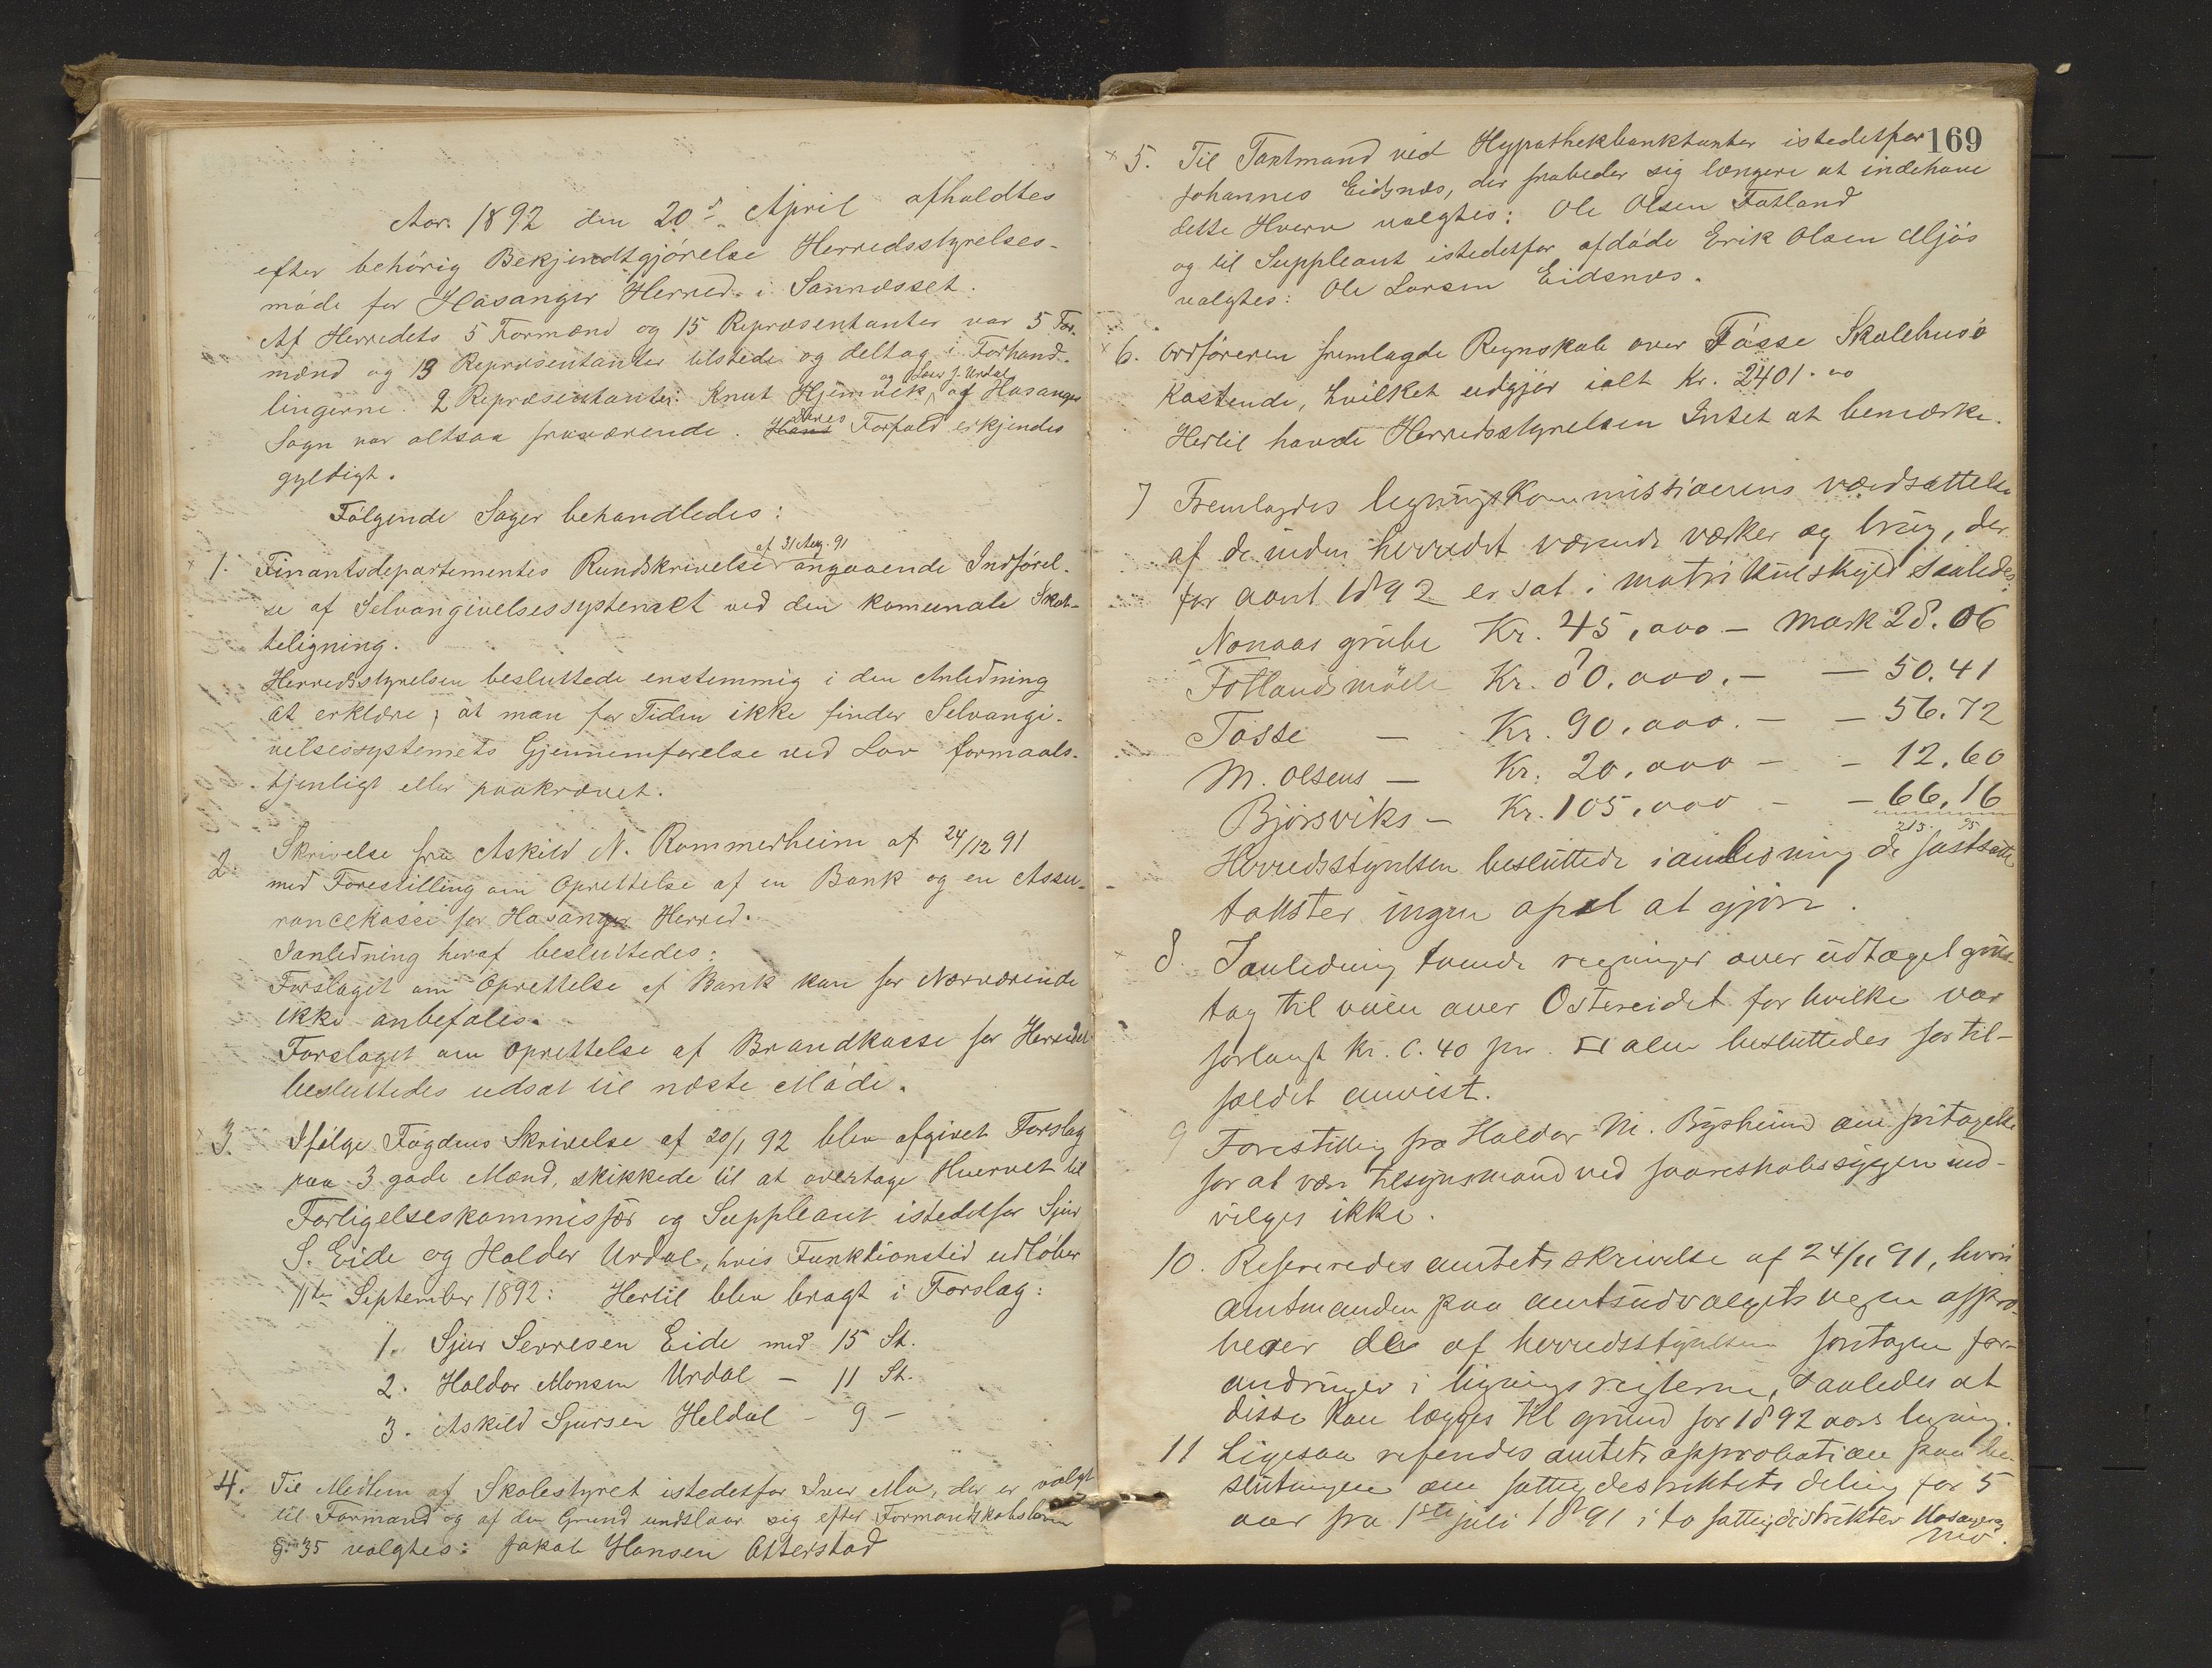 Aar 1892 den 20de April afholdtes
efter behörig Bekjendtgjörelse Herredsstyrelses-
möde for Hosanger Herred i Sannesset.
Af Herredets 5 Formænd og 15 Repræsentanter var 5 For-
mænd og 13 Repræsentanter tilstede og deltog i Forhand-
lingerne. 2 Repræsentanter: Knut Hjemvik og Lars J. Urdal af Hosanger
Sogn var altsaa fraværende. Hans Deres Forfald erkjendes
gyldigt.
Fölgende Sager behandledes:
1. Finantsdepartementes Rundskrivelse af 31 Aug. 91 angaaende Indförel-
se af Selvangivelsessystemet ved den komunale Skat-
teligning.
Herredsstyrelsen besluttede enstemmig i den Anledning
at erklære, at man for Tiden ikke finder Selvangi-
velsessystemets Gjennemförelse ved Lov formaals-
tjenligt eller paakrævet.
2. Skrivelse fra Askild N. Rommerheim af 24/12 91
med Forestilling om Oprettelse af en Bank og en Assu-
rancekasse for Hosanger Herred.
Ianledning heraf besluttedes:
Forslaget om Oprettelse af Bank kan for Nærværende
ikke anbefales.
Forslaget om Oprettelse af Brandkasse for Herredet
besluttedes udsat til næste Möde.
3. Ifölge Fogdens Skrivelse af 20/1 92 blev afgivet Forslag
paa 3 gode Mænd, skikkede til at overtage Hvervet til
Forligelseskommissær og Suppleant istedetfor Sjur
S. Eide og Haldor Urdal, hvis Funktionstid udlöber
11te September 1892: Hertil blev bragt i Forslag:
1. Sjur Severesen Eide med 15 St.
2. Haldor Monsen Urdal – 11 St.
3. Askild Sjursen Heldal – 9 –
4. Til Medlem af Skolestyret istedetfor Iver Mo, der er valgt
til Formand og af den Grund undslaar sig efter Formandskabsloven
§. 35 valgtes: Jakob Hansen Otterstad
169
5. Til Taxtmand ved Hypothekbanktaxter istedetfor
Johannes Eidsnes, der frabeder sig længere at indehave
dette Hverv valgtes: Ole Olsen Fotland
og til Suppleant istedetfor afdöde Erik Olsen Mjös
valgtes: Ole Larsen Eidsnes.
6. Ordföreren fremlagde Regnskab over Fosse Skolehus's
Kostende, hvilket udgjör ialt Kr. 2401.00
Hertil havde Herredsstyrelsen Intet at bemærke.
7 Fremlagdes legningskommissionens værdsættelse
af de inden herredet værende værker og brug, der
for aaret 1892 er sat i matrikulskyld saaledes:
Nonaas grube Kr. 45,000 – Mark 28.06
Fotlandsmölle Kr. 80.000. – – 50.41
Fosse – Kr. 90.000. – – 56.72
M. Olsens – Kr. 20,000 – – 12.60
Bjørsviks – Kr. 105,000 – – 66,16
213. 95
Herredsstyrelsen besluttede i anledning de fastsatte
takster ingen apel at gjöre.
8. Ianledning tvende regninger over udtaget grus-
tag til veien over Ostereidet for hvilke var
forlangt Kr. 0.40 pr. □ alen besluttedes fortil-
fældet anvist.
9 Forestilling fra Haldor M. Bysheim om fritagelse
for at være tilsynsmand ved faareskabssygen ind-
vilges ikke.
10. Refereredes amtets skrivelse af 24/11 91, hvori
amtmanden paa amtsudvalgets vegne appro-
berer de af herredsstyrelsen foretagne for-
andringer i lignings reglerne, saaledes at
disse kan lægges til grund for 1892 aars ligning.
11 Ligesaa refereredes amtets approbation paa be-
slutningen om fattigdestriktets deling for 5
aar fra 1ste juli 1891 i to fattigdistrikter Hosanger og
Mo.